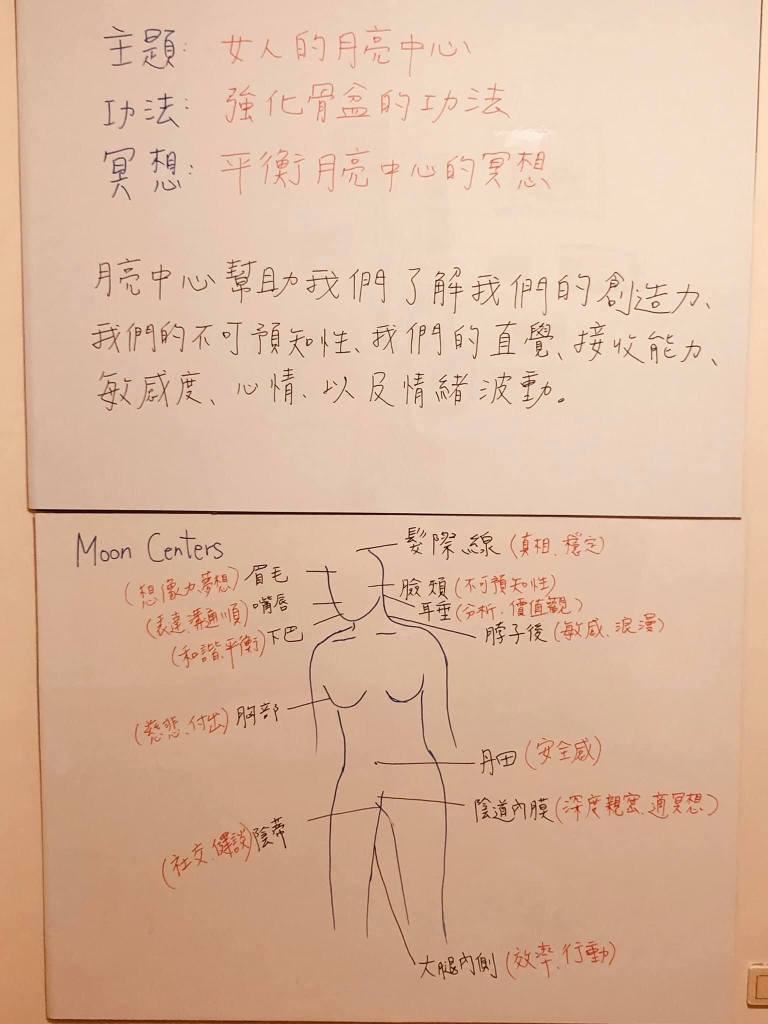 主題: 女人的月亮中心
功法: 強化骨盆的功法
冥想: 平衡月亮中心的冥想
月亮中心幫助我們了解我們的創造力、
我們的不可預知性、我們的直覺、接收能力、
敏感度、心情、以及情緒波動。
Moon Centers
髮際線 (真相、穩定)
(想像力夢想) 眉毛
臉頰 (不可預知性)
(表達溝通順) 嘴唇
耳垂 (分析、價值觀)
(和諧.平衡) 下巴
脖子後 (敏感、浪漫)
(慈悲.付出) 胸部
丹田 (安全感)
陰道內膜 (深度親密、適冥想)
(社交.健談) 陰蒂
大腿內側 (效率.行動)